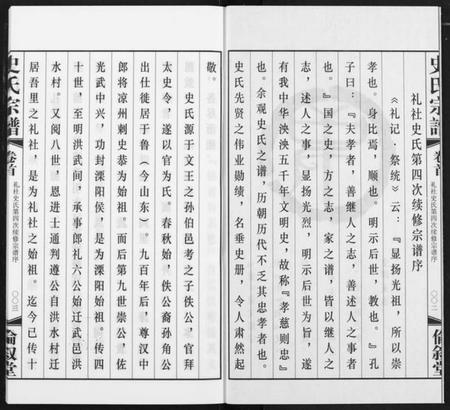 史氏宗譜
卷首
礼社史氏第四次续修宗谱序
〇〇二
倫敘堂
礼社史氏第四次续修宗谱序
《礼记·祭统》云：『显扬光祖，所以崇
孝也。身比焉，顺也。明示后世，教也。』孔
子曰：『夫孝者，善继人之志，善述人之事者
也。』国之史，方之志，家之谱，皆以继人之
志，述人之事，显扬光烈，明示后世为旨，遂
有我中华泱泱五千年文明史，故称『孝慈则忠』
也。余观史氏之谱，历朝历代不乏其忠孝者也。
史氏先贤之伟业勋绩，名垂史册，令人肃然起
敬。
史氏源于文王之孙伯邑考之子佚公，官拜
太史令，遂以官为氏。春秋始，佚公裔孙角公
出仕徙居于鲁（今山东）。九百年后，尊汉中
郎将凉州刺史恭为始祖。而后第九世崇公，佐
光武中兴，功封溧阳侯，是为溧阳始祖。传四
十世，至明洪武间，承事郎礼六公始迁武邑洪
水村。又阅八世，恩进士通判遵公自洪水村迁
居吾里之礼社，是为礼社之始祖。迄今已传十
史氏宗譜
卷首
礼社史氏第四次续修宗谱序
〇〇三
倫敘堂